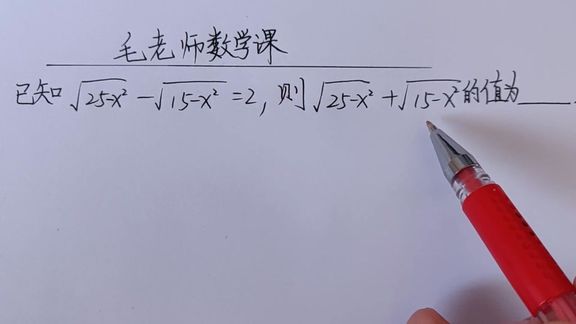 毛老师数学课
已知√(25-x²) - √(15-x²) = 2, 则√(25-x²) + √(15-x²)的值为____.